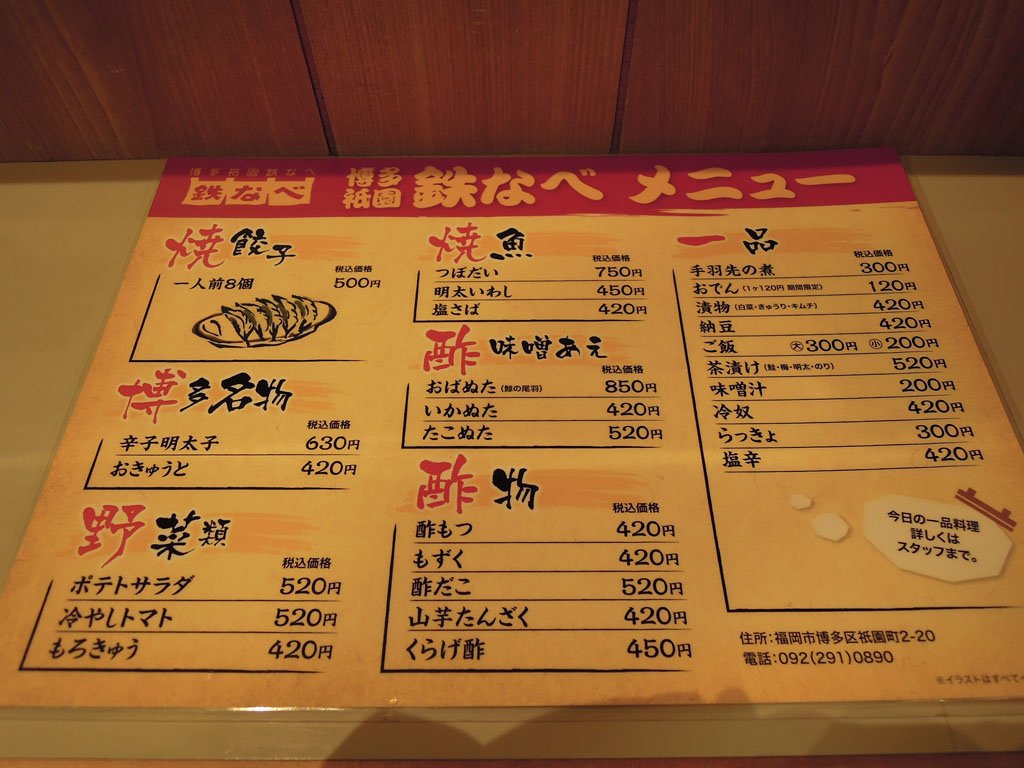 博多祇園鉄なべ
鉄なべ
博多祇園 鉄なべ メニュー
焼餃子
税込価格
一人前8個 500円
博多名物
税込価格
辛子明太子 630円
おきゅうと 420円
野菜類
税込価格
ポテトサラダ 520円
冷やしトマト 520円
もろきゅう 420円
焼魚
税込価格
つぼだい 750円
明太いわし 450円
塩さば 420円
酢味噌あえ
税込価格
おばぬた(鯨の尾羽) 850円
いかぬた 420円
たこぬた 520円
酢物
税込価格
酢もつ 420円
もずく 420円
酢だこ 520円
山芋たんざく 420円
くらげ酢 450円
一品
税込価格
手羽先の煮 300円
おでん(1ヶ120円 期間限定) 120円
漬物(白菜・きゅうり・キムチ) 420円
納豆 420円
ご飯 ㊅300円 ㊙200円
茶漬け(鮭・梅・明太・のり) 520円
味噌汁 200円
冷奴 420円
らっきょ 300円
塩辛 420円
今日の一品料理
詳しくは
スタッフまで。
住所:福岡市博多区祇園町2-20
電話:092(291)0890
※イラストはすべて